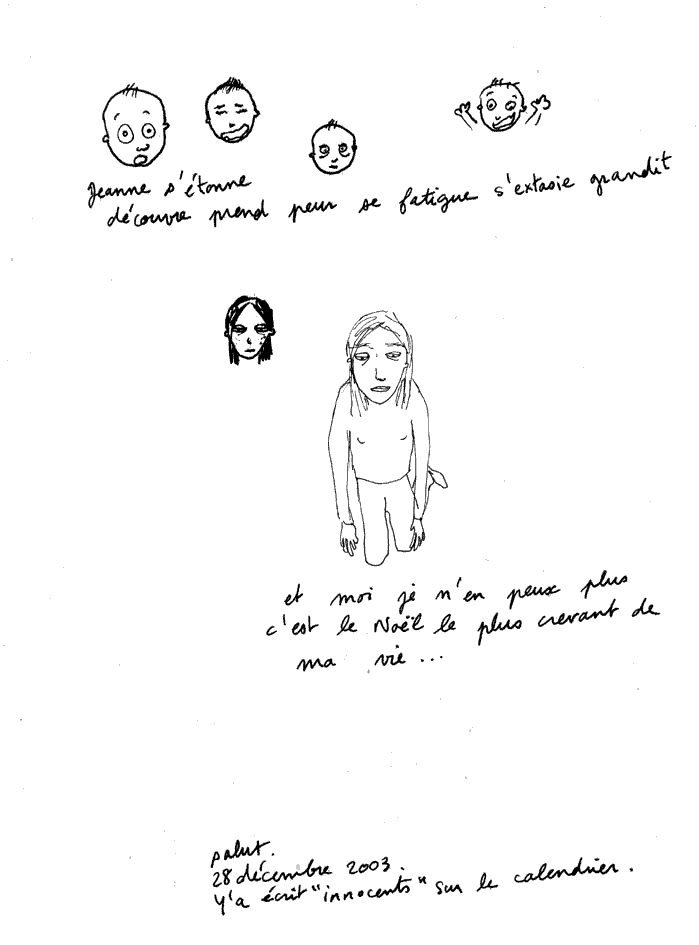 Jeanne s'étonne
découvre prend peur se fatigue s'extasie grandit
et moi je n'en peux plus
c'est le Noël le plus crevant de
ma vie ...
salut.
28 décembre 2003.
Y'a écrit "innocents" sur le calendrier.